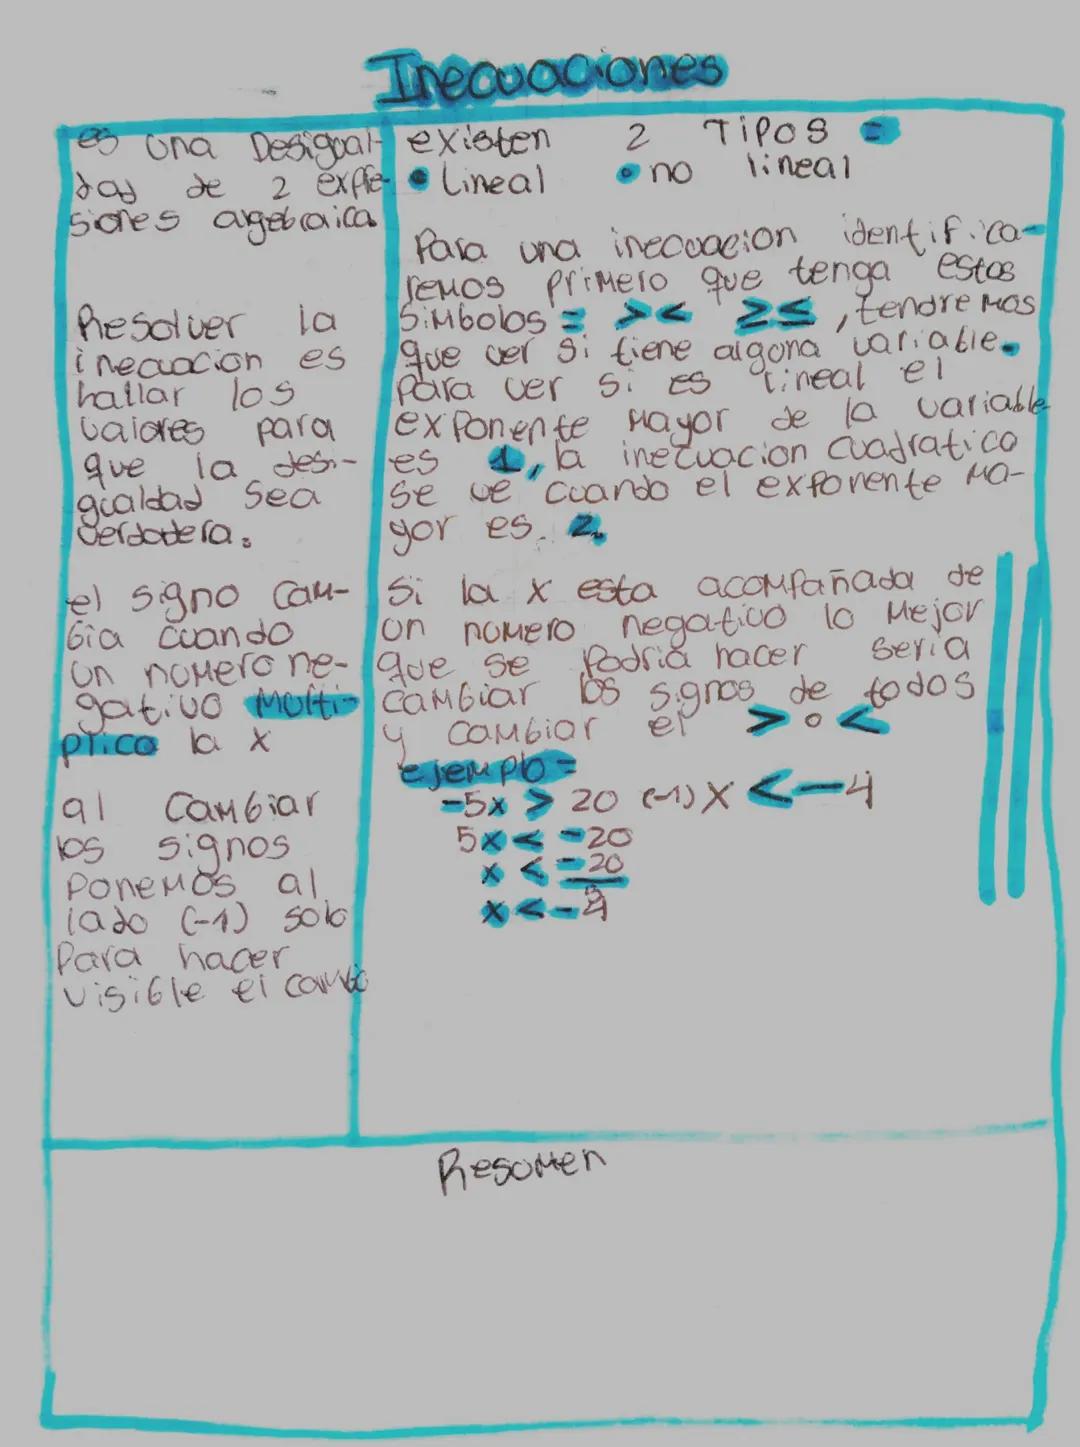 Inecuaciones
es una Desigual-
dad de 2 expre-
siones algebraica
Resolver la
inecuacion es
hallar los
valores para
que la desi-
gualdad sea
verdadera.
el signo cam-
bia cuando
un numero ne-
gativo multi-
plica la x
al cambiar
los signos
ponemos al
lado (-1) solo
para hacer
visible el cambio
existen 2 Tipos =
• Lineal • no lineal
Para una inecuacion identifica-
remos primero que tenga estos
simbolos = > < ≥ ≤, tendremos
que ver si tiene alguna variable.
para ver si es lineal el
exponente mayor de la variable
es 1, la inecuacion cuadratica
se ve cuando el exponente ma-
yor es 2.
Si la x esta acompañada de
un numero negativo lo mejor
que se podria hacer seria
cambiar los signos de todos
y cambiar el > o <
ejemplo =
-5x > 20 (-1) x < -4
5x < -20
x < -20
5
x < -4
Resumen